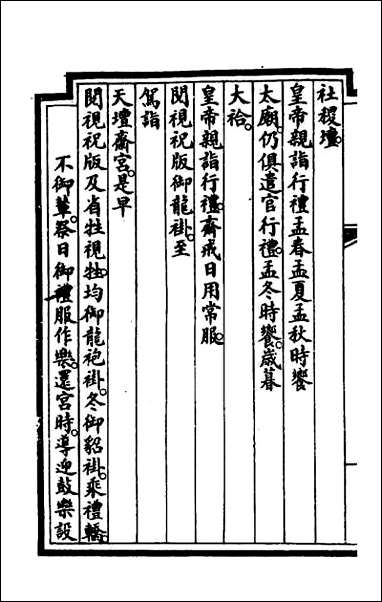 社稷壇。
皇帝親詣行禮孟春孟夏孟秋時饗
太廟。仍俱遣官行禮。孟冬時饗。歲暮
大祫。
皇帝親詣行禮。齋戒日用常服。
閱視祝版御龍褂。至
駕詣
天壇齋宮。是早
閱視祝版及省牲視牲。均御龍袍褂。冬御貂褂。乘禮轎。
不御輦。祭日御禮服作樂。還宮時。導迎鼓樂設